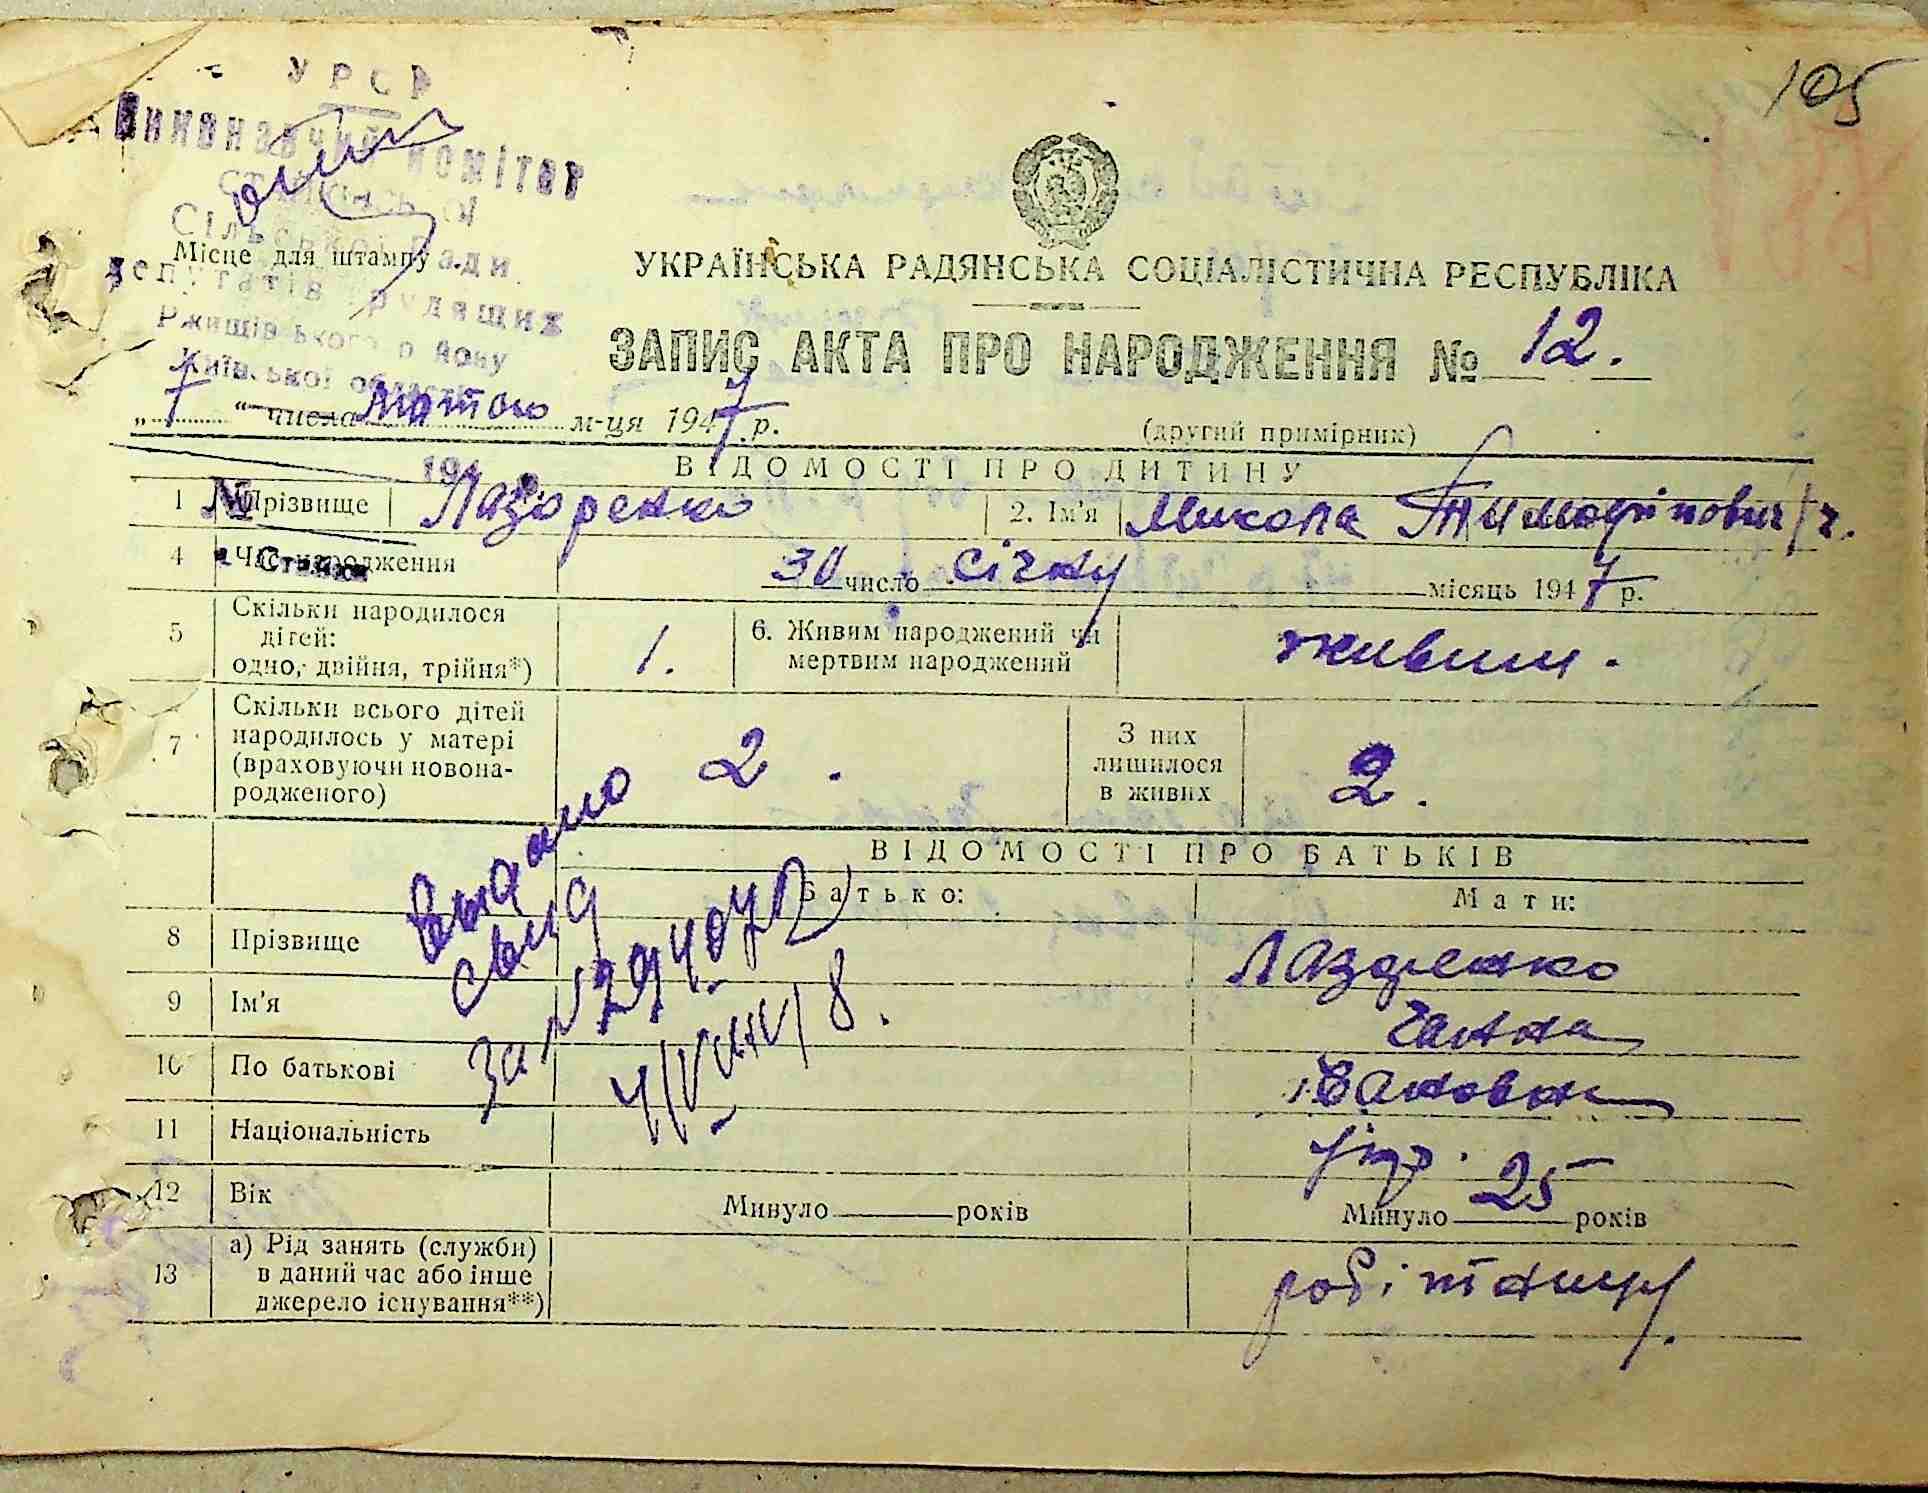 105
УРСР
Виконавчий комітет
Сільської Ради
Місце для штампу
депутатів трудящих
Ржищівського району
Київської області
УКРАЇНСЬКА РАДЯНСЬКА СОЦІАЛІСТИЧНА РЕСПУБЛІКА
ЗАПИС АКТА ПРО НАРОДЖЕННЯ № 12.
„7“ числа Лютого м-ця 1947 р.
(другий примірник)
194
ВІДОМОСТІ ПРО ДИТИНУ
1 № Прізвище Лазоренко 2. Ім'я Микола Тимофійович
4 Час народження 30 число січня місяць 1947 р.
5 Скільки народилося дітей: одно, двійня, трійня*) 1. 6. Живим народжений чи мертвим народжений живим.
7 Скільки всього дітей народилось у матері (враховуючи новонародженого) 2. З них лишилося в живих 2.
ВІДОМОСТІ ПРО БАТЬКІВ
Батько: Мати:
8 Прізвище Лазоренко
9 Ім'я Ганна
10 По батькові Івановна
11 Національність укр.
12 Вік Минуло ____ років Минуло 25 років
13 а) Рід занять (служби) в даний час або інше джерело існування**) робітниця